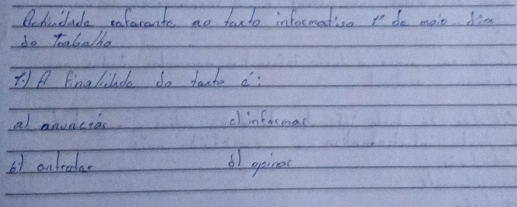 Actividade referente ao texto informativo 1º de maio dia
do Trabalho
1.) A finalidade do texto é:
a) anunciar c) informar
b) entreter d) opinar